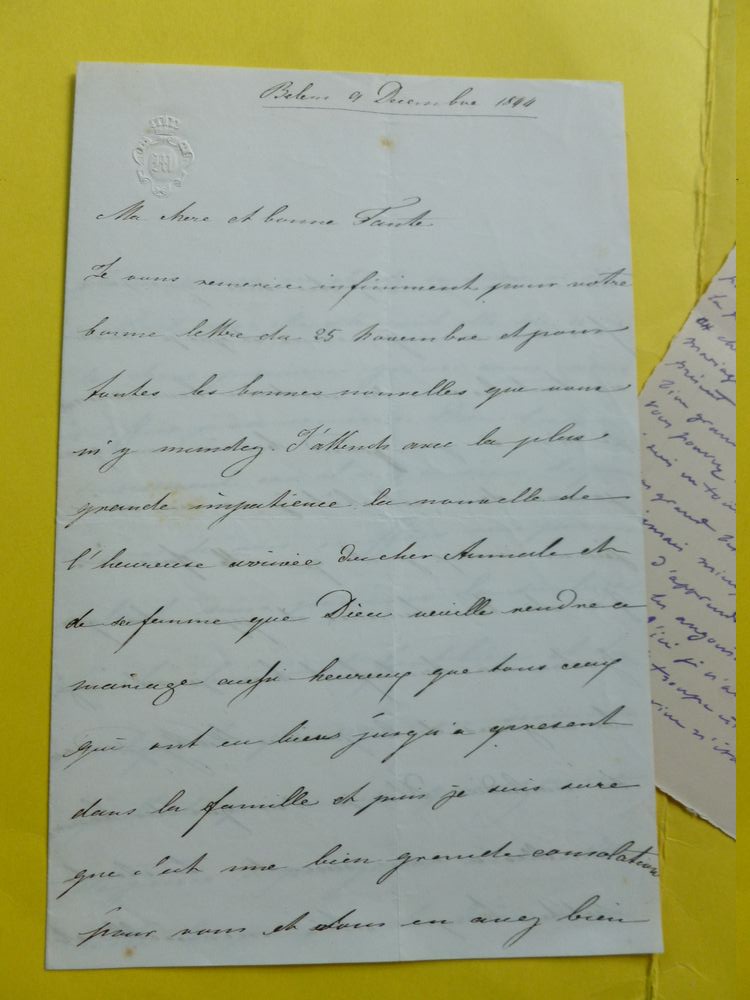 Belem 9 Decembre 1844
M
Ma chere et bonne Tante
Je vous remercie infiniment pour votre
bonne lettre du 25 Novembre et pour
toutes les bonnes nouvelles que vous
m'y mandez. J'attends avec la plus
grande impatience la nouvelle de
l'heureuse arrivée du cher Aumale et
de sa femme que Dieu veuille rendre ce
mariage aussi heureux que tous ceux
qui ont eu lieu jusqu'a present
dans la famille et puis je suis sure
que c'est une bien grande consolation
pour vous et vous en avez bien
mariag
vous pouvez
grand
jamais
d'apprend